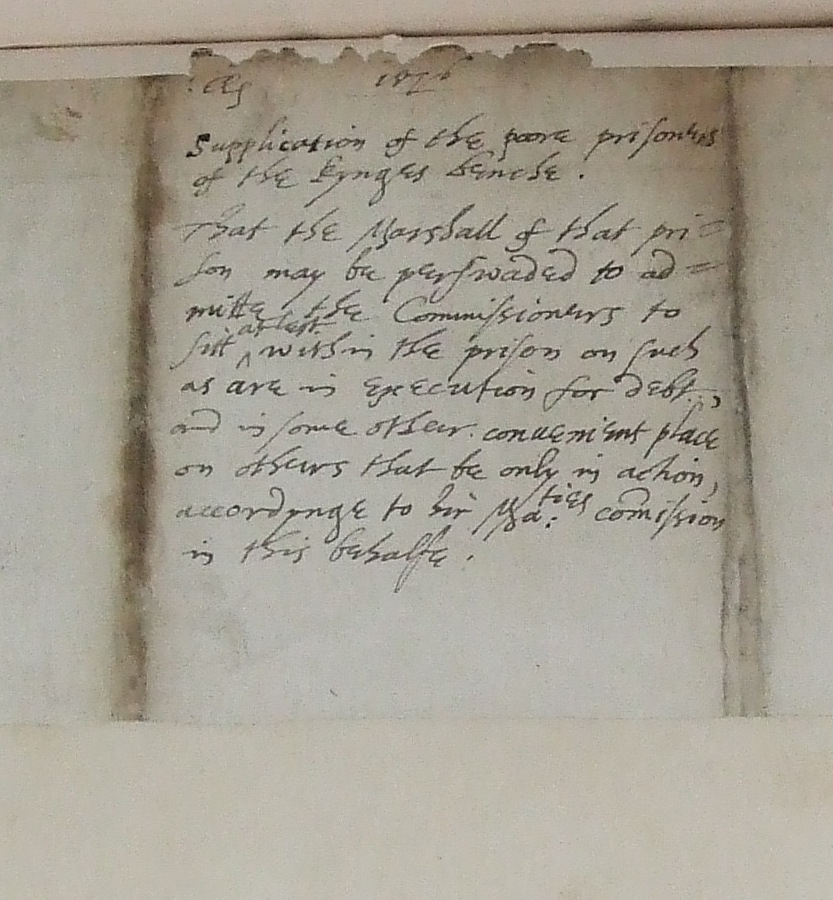 1576
Supplication of the poore prisoners
of the Kynges benche.
That the Marshall of that pri=
son may be perswaded to ad=
mitte the Commissioners to
sitt ^at lest^ within the prison on such
as are in Execution for debt,
and in some other convenient place
on others that be only in action,
accordynge to hir Ma:ties comission
in this behalfe.